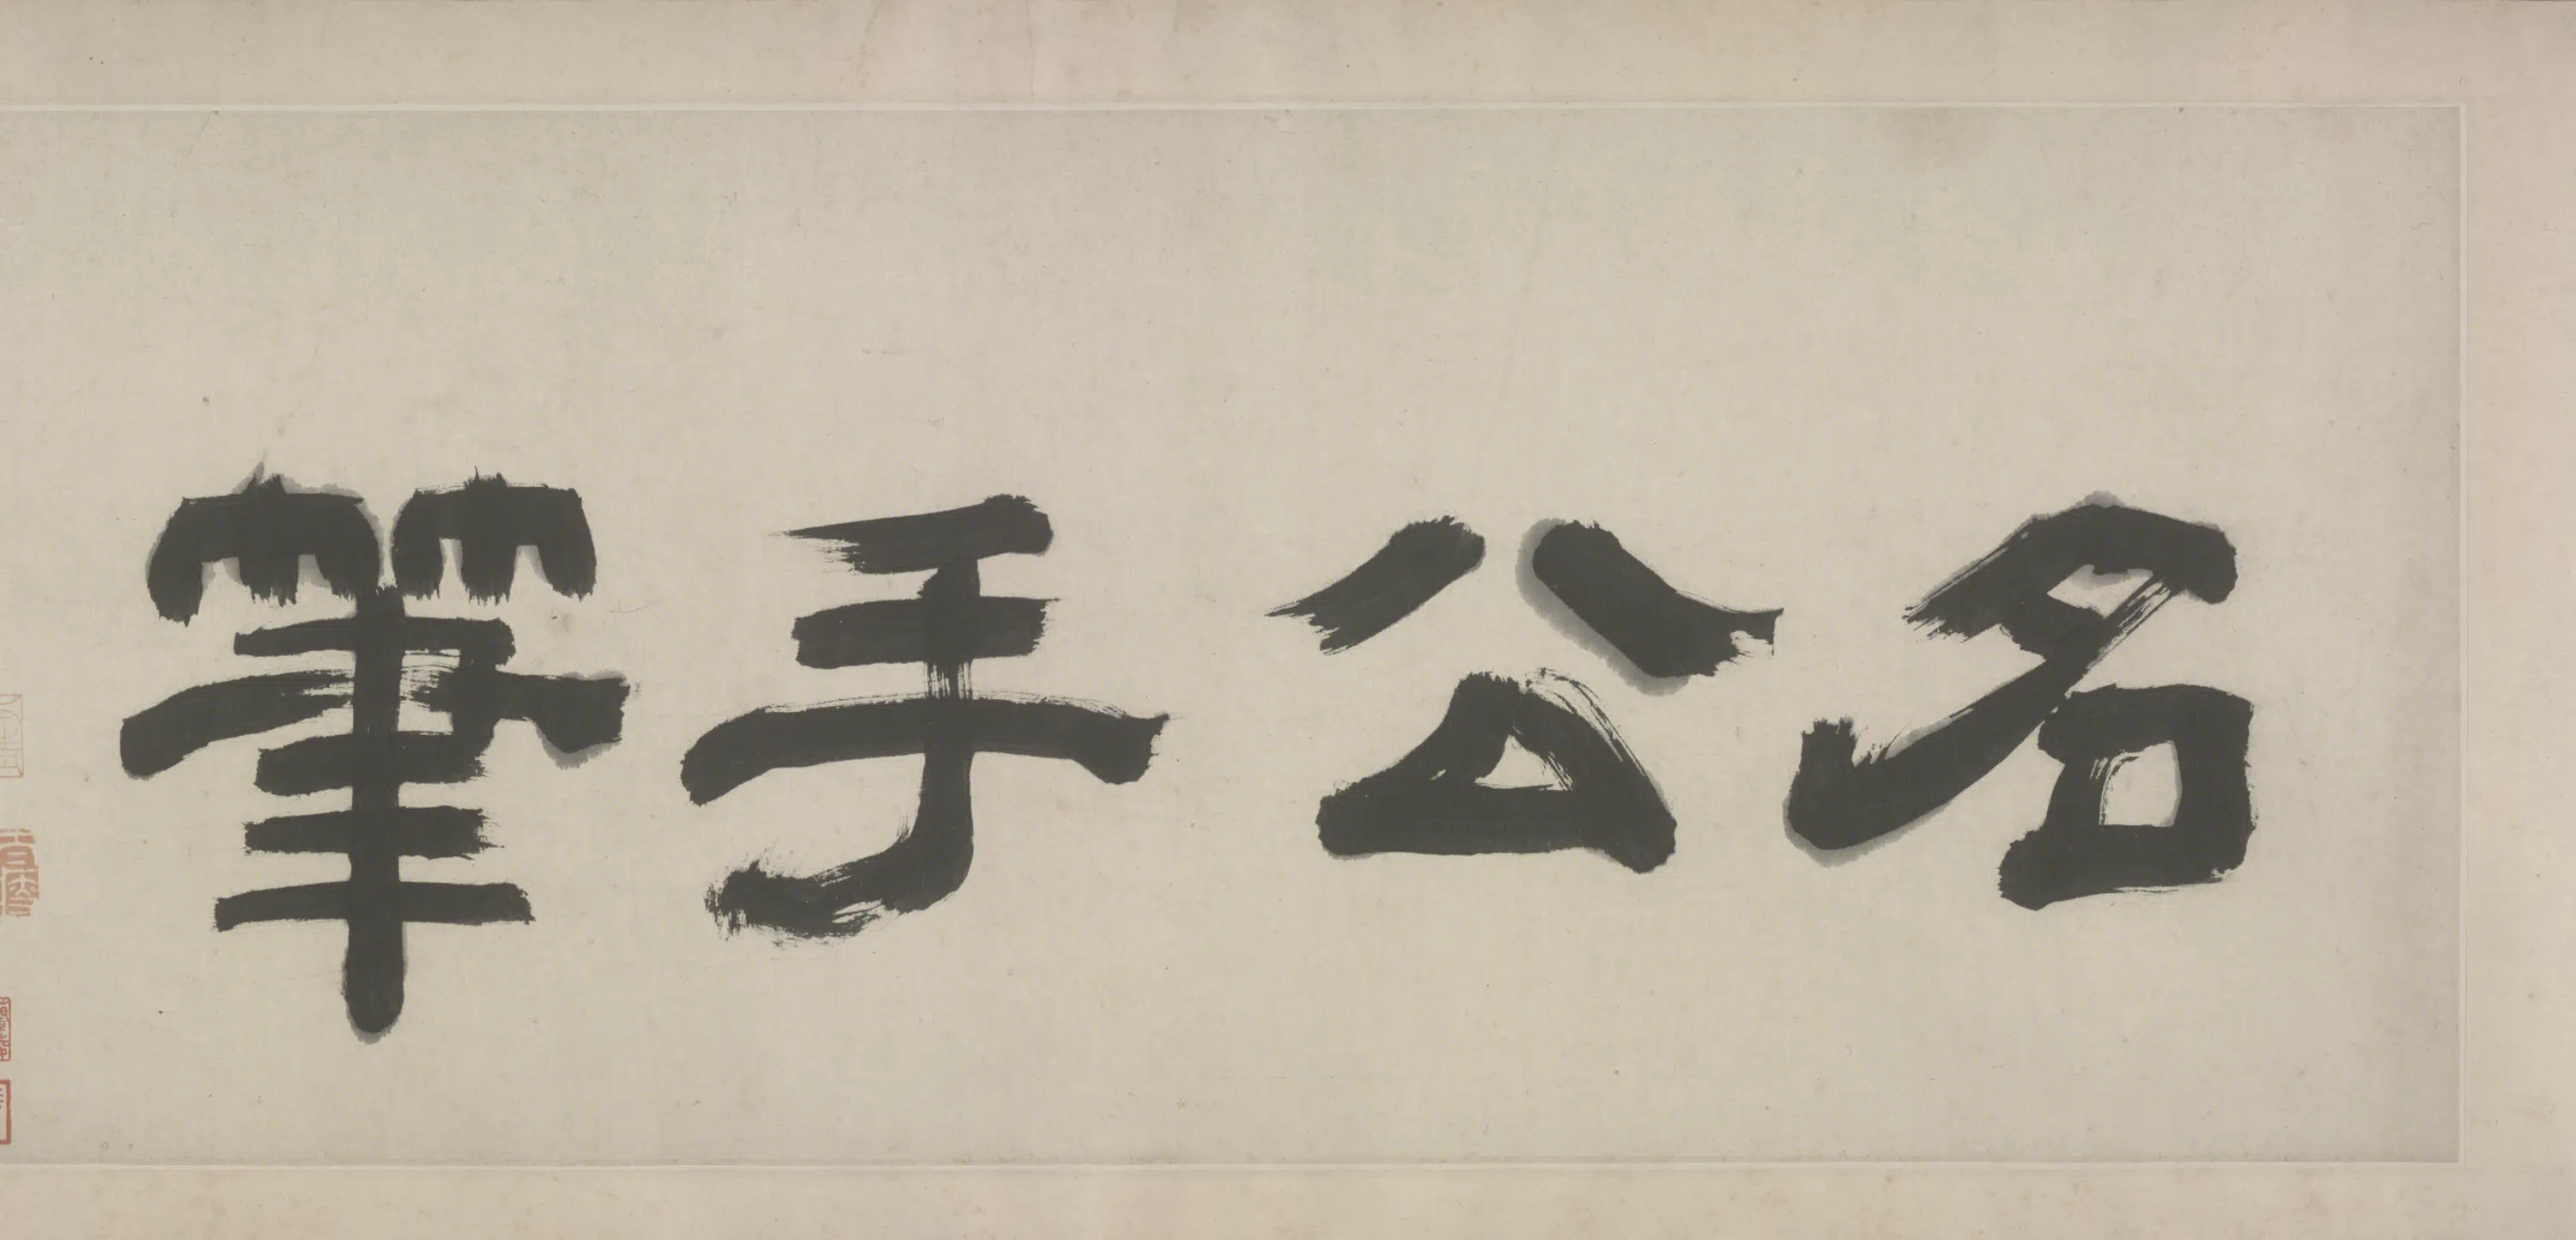 名公手筆